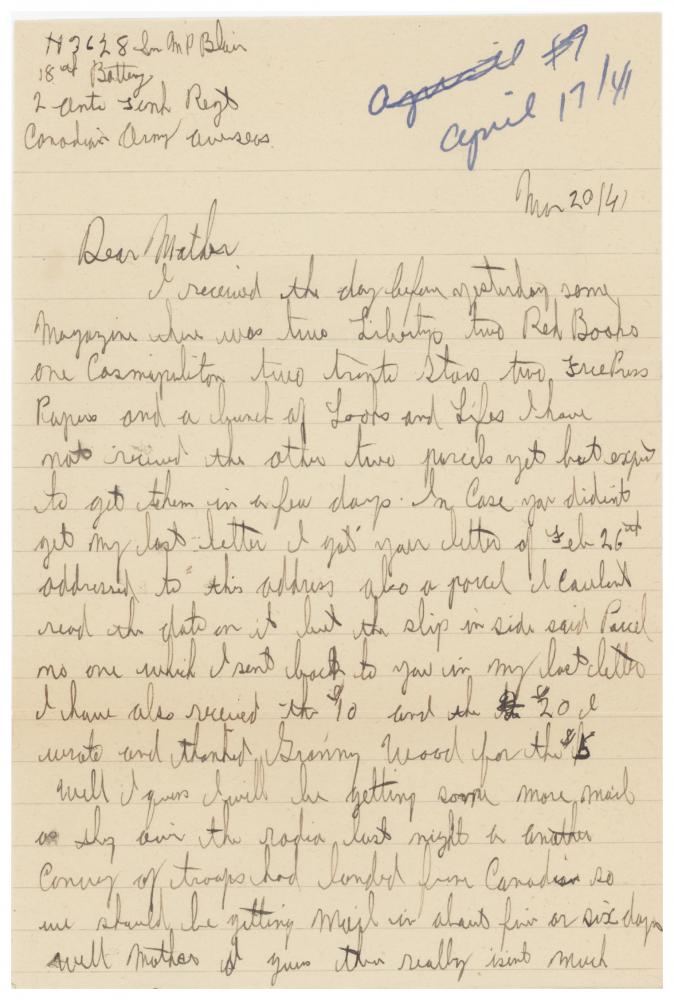 H3628 Gnr M P Blair
18th Battery
2 Anti Tank Regt
Canadian Army Overseas.
April 17/41
Mar 20/41
Dear Mother
I received the day before yesterday some
Magazine there was two Libertys two Red Books
one Cosmipoliton two tronto Stars two Free Press
Papers and a bunch of Looks and Lifes I have
not recived the other two parcels yet but expect
to get them in a few days. In Case you didint
get my last letter I got your letter of Feb 26th
addressed to this address also a parcel I Couldent
read the date on it but the slip in side said Parcel
no one which I sent back to you in my last letter
I have also recived the $10 and the $20 I
wrote and thanked Granny Wood for the $5
Well I guess I will be getting some more mail
as they the radio last night a another
Convoy of troops had landed from Canadian so
we should be getting Mail in about five or six days
Well Mother I guess there really isint much